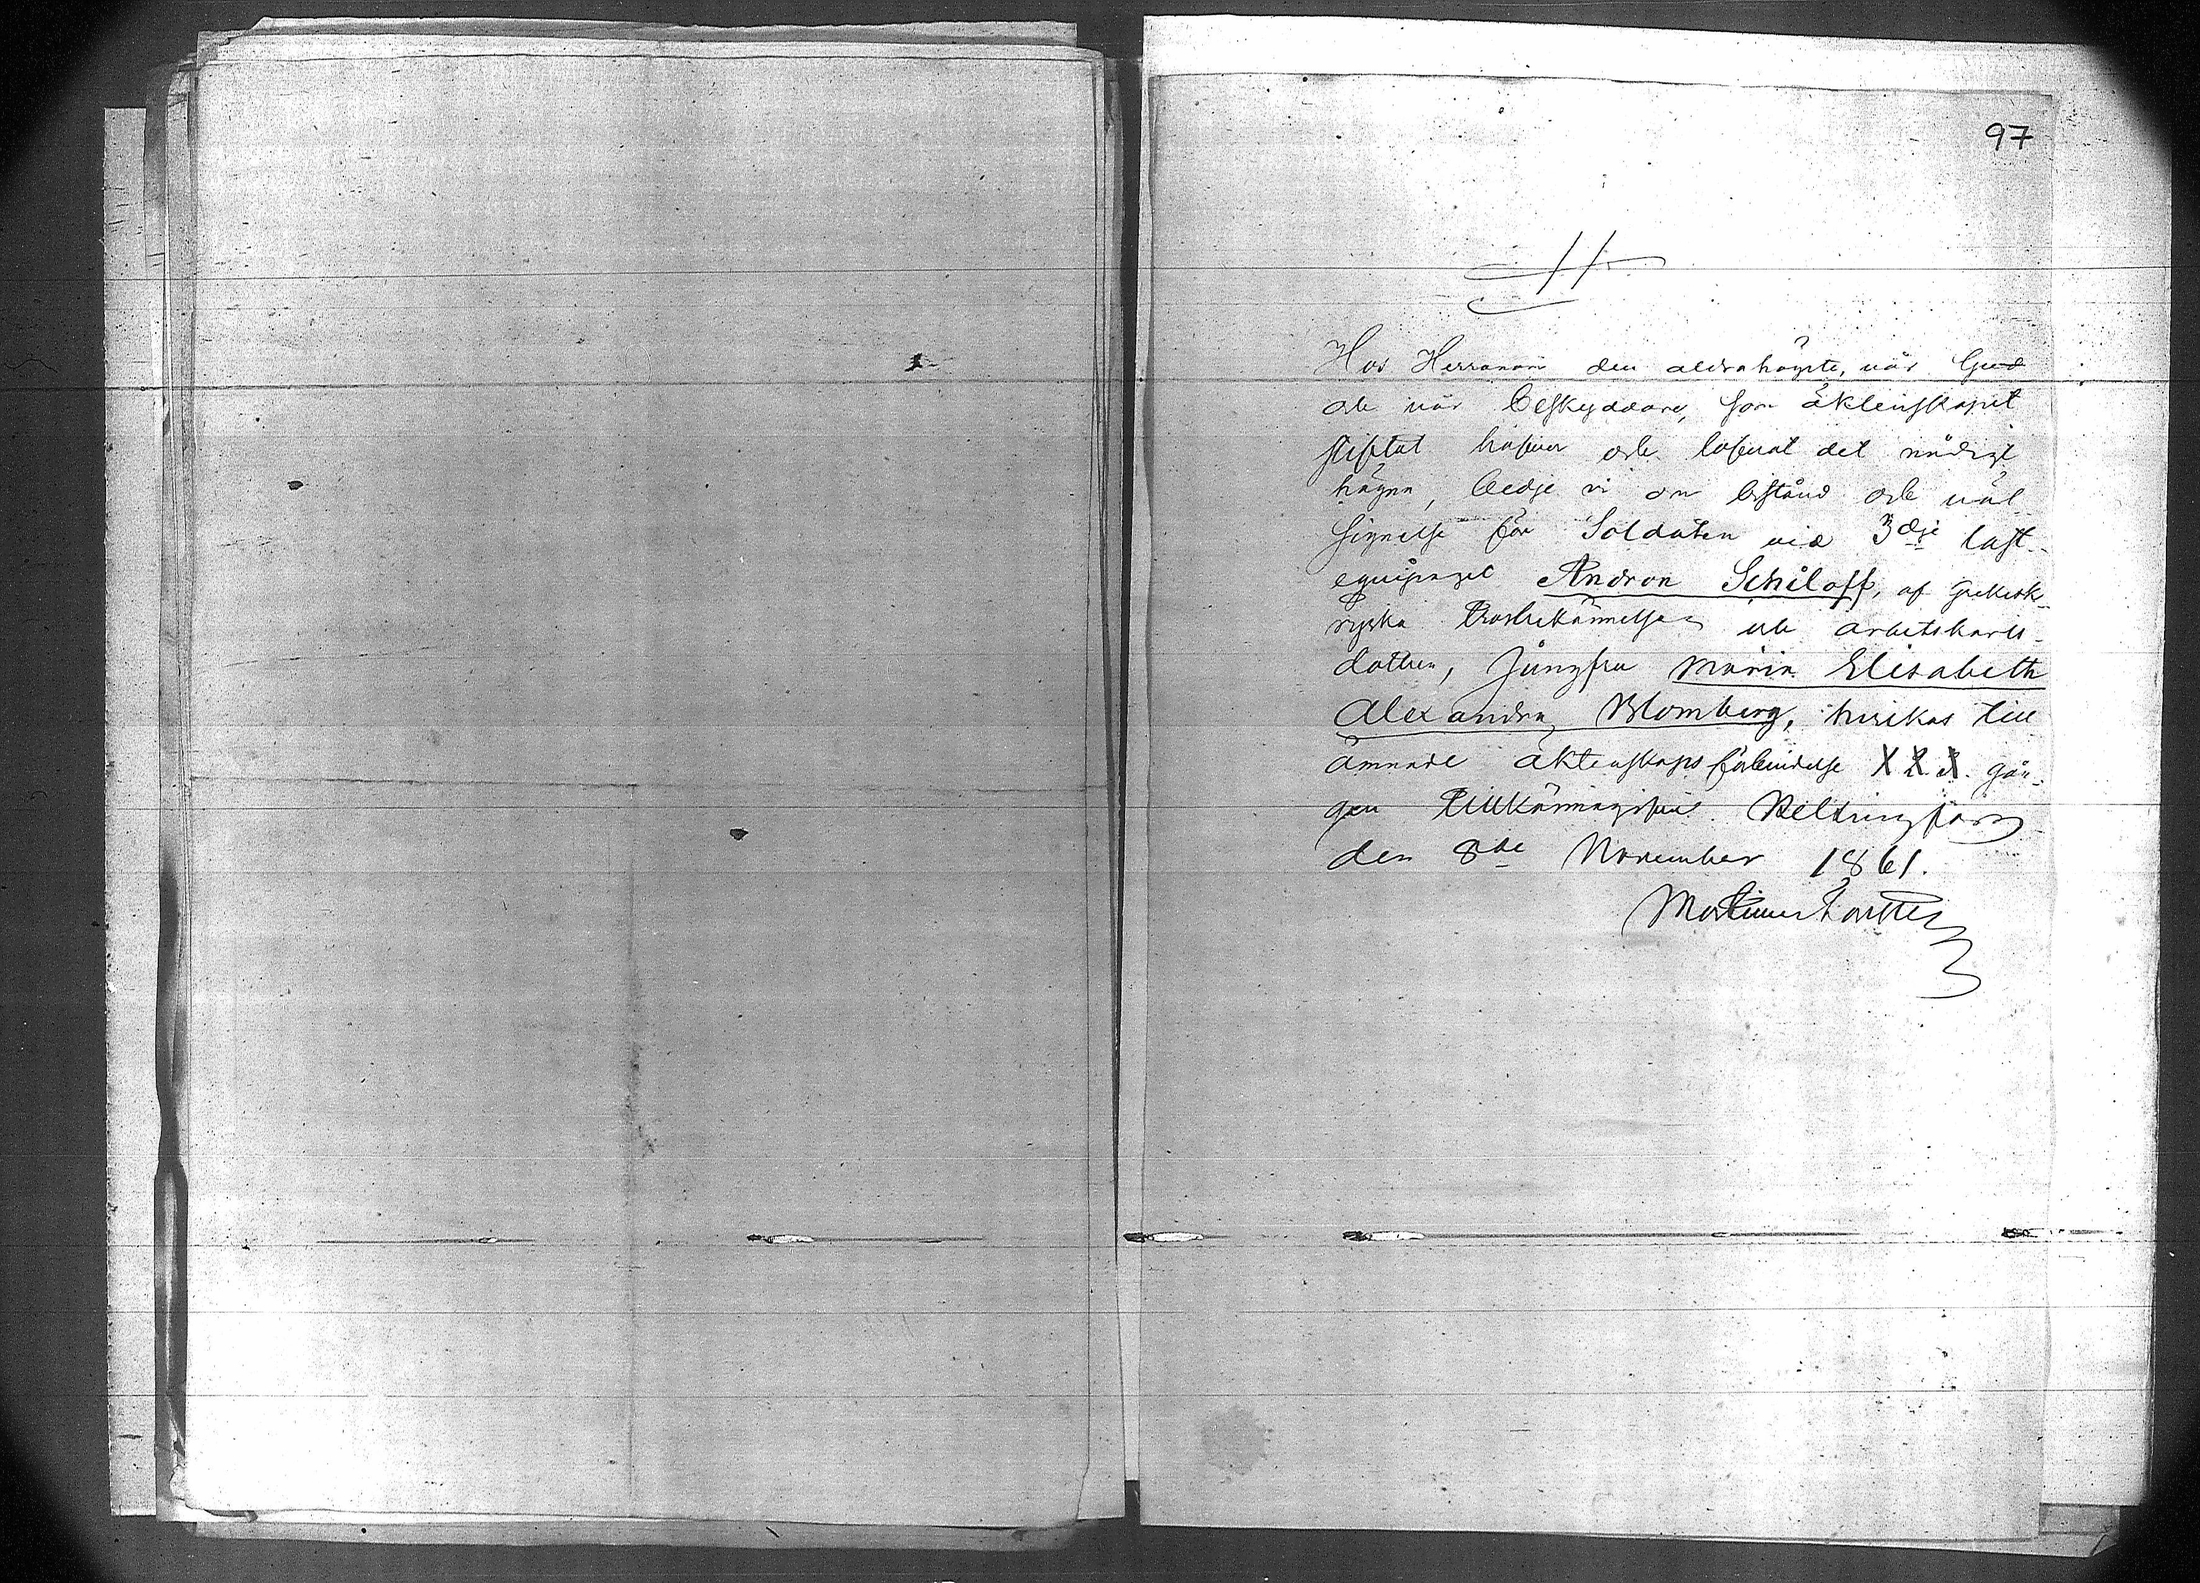 97
Hos Herranom den aldrahögste, vår Gud
och vår Beskyddare, som äktenskapet
stiftat hafver och lofvat det nådigt
hägna, bedje vi om bistånd och väl
signelse för Soldaten vid 3dje last-
equipaget Andron Schiloff, af grekisk-
ryska trosbekännelsen och arbetskarls-
dottren, Jungfru Maria Elisabeth
Alexandra Blomberg, hvilkas till
ämnade äktenskaps förbindelse X X X gån-
gen tillkännagifves. Helsingfors
den 8de November 1861.